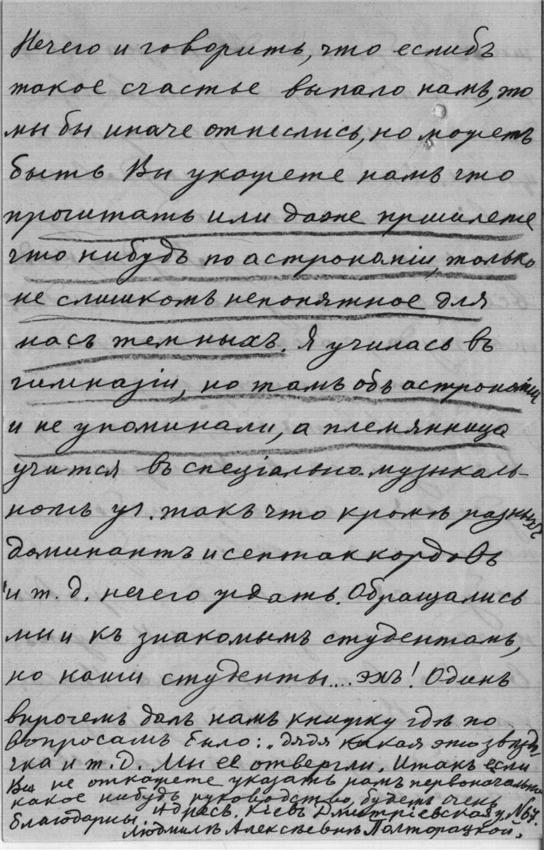 Нечего и говорить, что еслибъ
такое счастье выпало намъ, то
мы бы иначе отнеслись, но можетъ
быть Вы укажете намъ что
прочитать или даже пришлете
что нибудь по астрономіи, только
не слишкомъ непонятное для
насъ темныхъ. Я училась въ
гимназіи, но тамъ объ астрономіи
и не упоминали, а племянница
учится въ спеціально-музыкаль-
номъ уч. такъ что кромѣ разныхъ
доминантъ и септаккордовъ
и т. д. нечего ждать. Обращались
мы и къ знакомымъ студентамъ,
но наши студенты.... эхъ! Одинъ
впрочемъ далъ намъ книжку гдѣ по
вопросамъ было: „дядя какая это звѣздо-
чка и т. д. Мы ее отвергли. Итакъ если
Вы не откажете указать намъ первоначально
какое нибудь руководство, будемъ очень
благодарны. Адресъ. Кіевъ Дмитріевская у. №67.
Людмилѣ Алексѣевнѣ Полторацкой.